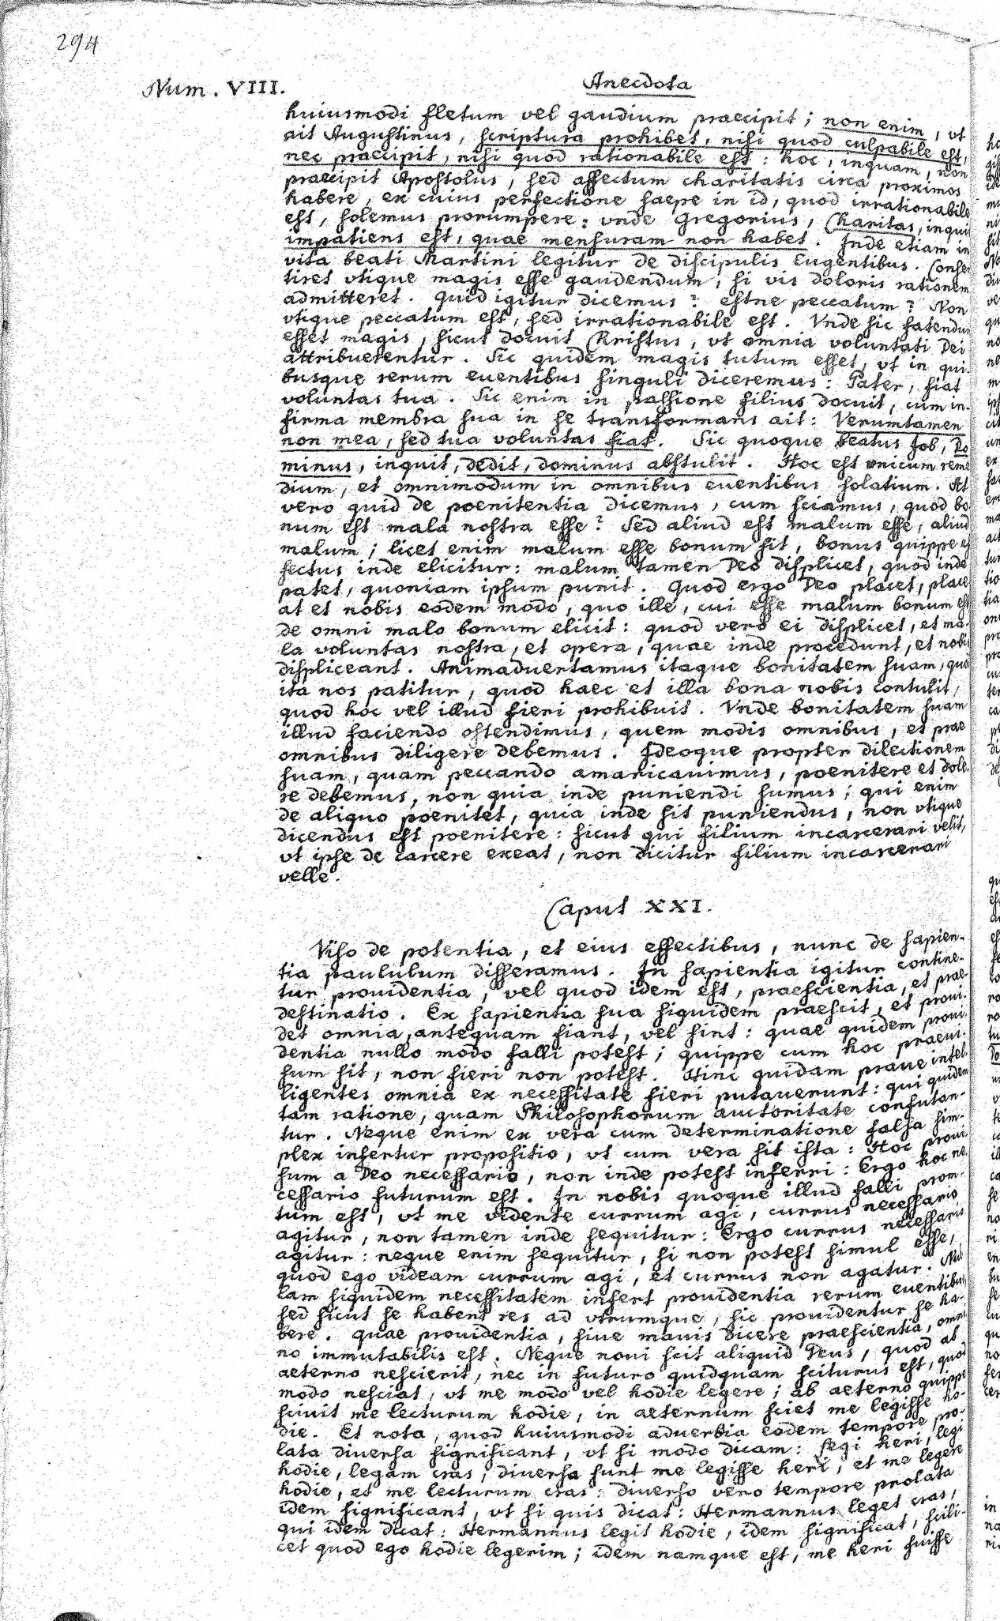 294
Num. VIII.
Anecdota
huiusmodi fletum vel gaudium praecipit; non enim, vt
ait Augustinus, scriptura prohibet, nisi quod culpabile est,
nec praecipit, nisi quod rationabile est: hoc, inquam, non
praecipit Apostolus, sed affectum charitatis circa proximos
habere, ex cuius perfectione saepe in id, quod irrationabile
est, solemus prorumpere: vnde Gregorius, Charitas, inquit
impatiens est, quae mensuram non habet. Inde etiam in
vita beati Martini legitur de discipulis lugentibus. Conse-
tiret vtique magis esse gaudendum, si vis doloris rationem
admitteret. Quid igitur dicemus? estne peccatum? Non
vtique peccatum est, sed irrationabile est. Vnde sic fatendum
esset magis, sicut docuit Christus, vt omnia voluntati Dei
attribuerentur. Sic quidem magis tutum esset, vt in qui-
busque rerum euentibus singuli diceremus: Pater, fiat
voluntas tua. Sic enim in passione filius docuit, cum in-
firma membra sua in se transformans ait: Verumtamen
non mea, sed tua voluntas fiat. Sic quoque beatus Job, Do
minus, inquit, dedit, dominus abstulit. Hoc est vnicum reme
dium, et omnimodum in omnibus euentibus solatium. At
vero quid de poenitentia dicemus, cum sciamus, quod bo
num est mala nostra esse? Sed aliud est malum esse, aliud
malum; licet enim malum esse bonum sit, bonus quippe ef
fectus inde elicitur: malum tamen Deo displicet, quod inde
patet, quoniam ipsum punit. Quod ergo Deo placet, place
at et nobis eodem modo, quo ille, cui esse malum bonum est
de omni malo bonum elicit: quod vero ei displicet, et ma-
la voluntas nostra, et opera, quae inde procedunt, et nobis
displiceant. Animaduertamus itaque bonitatem suam, quod
ita nos patitur, quod haec et illa bona nobis contulit,
quod hoc vel illud fieri prohibuit. Vnde bonitatem suam
illud faciendo ostendimus, quem modis omnibus, et prae
omnibus diligere debemus. Ideoque propter dilectionem
suam, quam peccando amaricauimus, poenitere et dole-
re debemus, non quia inde puniendi sumus; qui enim
de aliquo poenitet, quia inde sit puniendus, non vtique
dicendus est poenitere: sicut qui filium incarcerari velit,
vt ipse de carcere exeat, non dicitur filium incarcerari
velle.
Caput XXI.
Viso de potentia, et eius effectibus, nunc de sapien-
tia paululum disseramus. In sapientia igitur contine-
tur prouidentia, vel quod idem est, praescientia, et prae-
destinatio. Ex sapientia sua siquidem praescit, et proui-
det omnia, antequam fiant, vel sint: quae quidem proui-
dentia nullo modo falli potest; quippe cum hoc praeui-
sum sit, non fieri non potest. Hinc quidam praue intel
ligentes omnia ex necessitate fieri putauerunt: qui quidem
tam ratione, quam Philosophorum auctoritate confutan-
tur. Neque enim ex vera cum determinatione falsa sim-
plex infertur propositio, vt cum vera sit ista: Hoc proui
sum a Deo necessario, non inde potest inferri: Ergo hoc ne
cessario futurum est. In nobis quoque illud falli prom-
tum est, vt me vidente currum agi, currus necessario
agitur, non tamen inde sequitur: Ergo currus necessario
agitur: neque enim sequitur, si non potest simul esse,
quod ego videam currum agi, et currus non agatur. Nul
lam siquidem necessitatem infert prouidentia rerum euentibus
sed sicut se habent res ad vtrumque, sic prouidentur se ha-
bere. Quae prouidentia, siue mauis dicere praescientia, omni
no immutabilis est. Neque noui scit aliquid Deus, quod ab
aeterno nescierit, nec in futuro quidquam sciturus est, quod
modo nesciat, vt me modo vel hodie legere; ab aeterno quippe
sciuit me lecturum hodie, in aeternum sciet me legisse ho-
die. Et nota, quod huiusmodi aduerbia eodem tempore pro-
lata diuersa significant, vt si modo dicam: Legi heri, legi
hodie, legam cras; diuersa sunt me legisse heri, et me legere
hodie, et me lecturum cras: diuerso vero tempore prolata
idem significant, vt si quis dicat: Hermannus leget cras,
qui idem dicat: Hermannus legit hodie, idem significat, scili-
cet quod ego hodie legerim; idem namque est, me heri fuisse